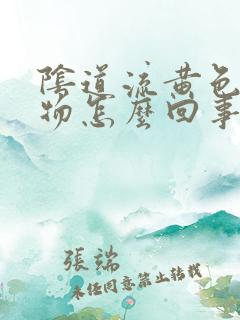 陰道流黃色
物怎麼回事
張端
未经同意禁止转载